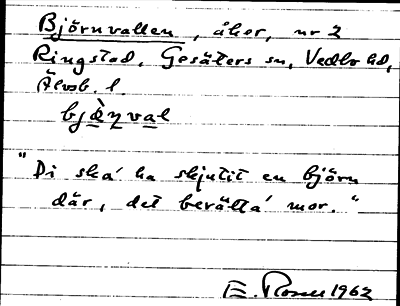 Björnvallen, åker, nr 2
Ringstad, Gesäters sn, Vedbo hd,
Älvsb. l.
bjæ̀ṇval
"Di ska' ha skjutit en björn
där, det berätta' mor."
E. 1962